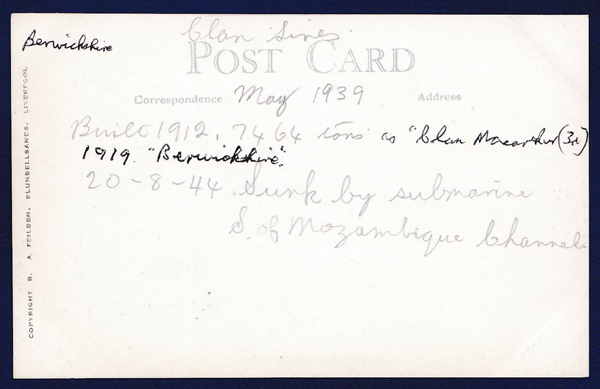 Clan Lines.
Berwickshire
POST CARD
Correspondence
May 1939
Address
Built 1912, 7464 tons as "Clan Macarthur (3rd)
1919. "Berwickshire".
20-8-44 Sunk by submarine
S. of Mozambique Channel
COPYRIGHT B. & A. FEILDEN, BLUNDELLSANDS, LIVERPOOL